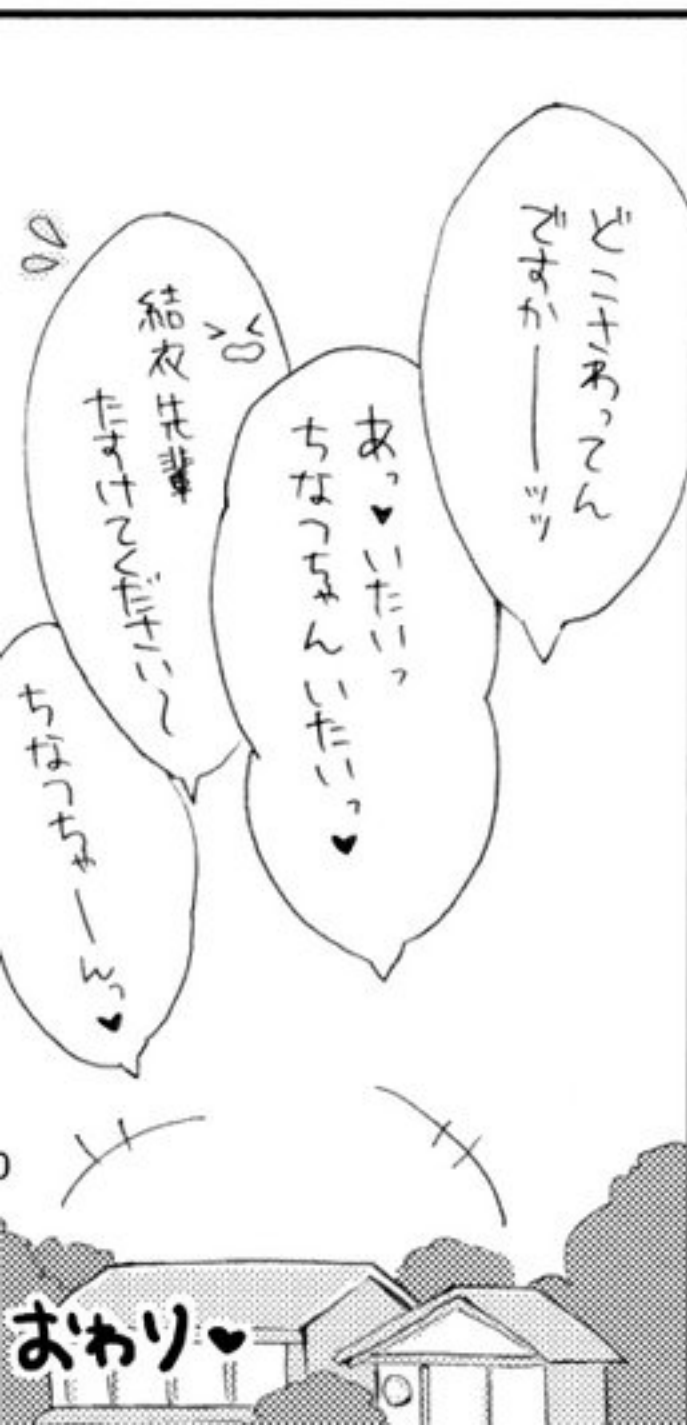 どこさわってん
ですかーーーッッ
あっ♥いたいっ
ちなつちゃんいたいっ♥
結衣先輩
たすけてくださいい～
ちなつちゃーんっ♥
おわり♥